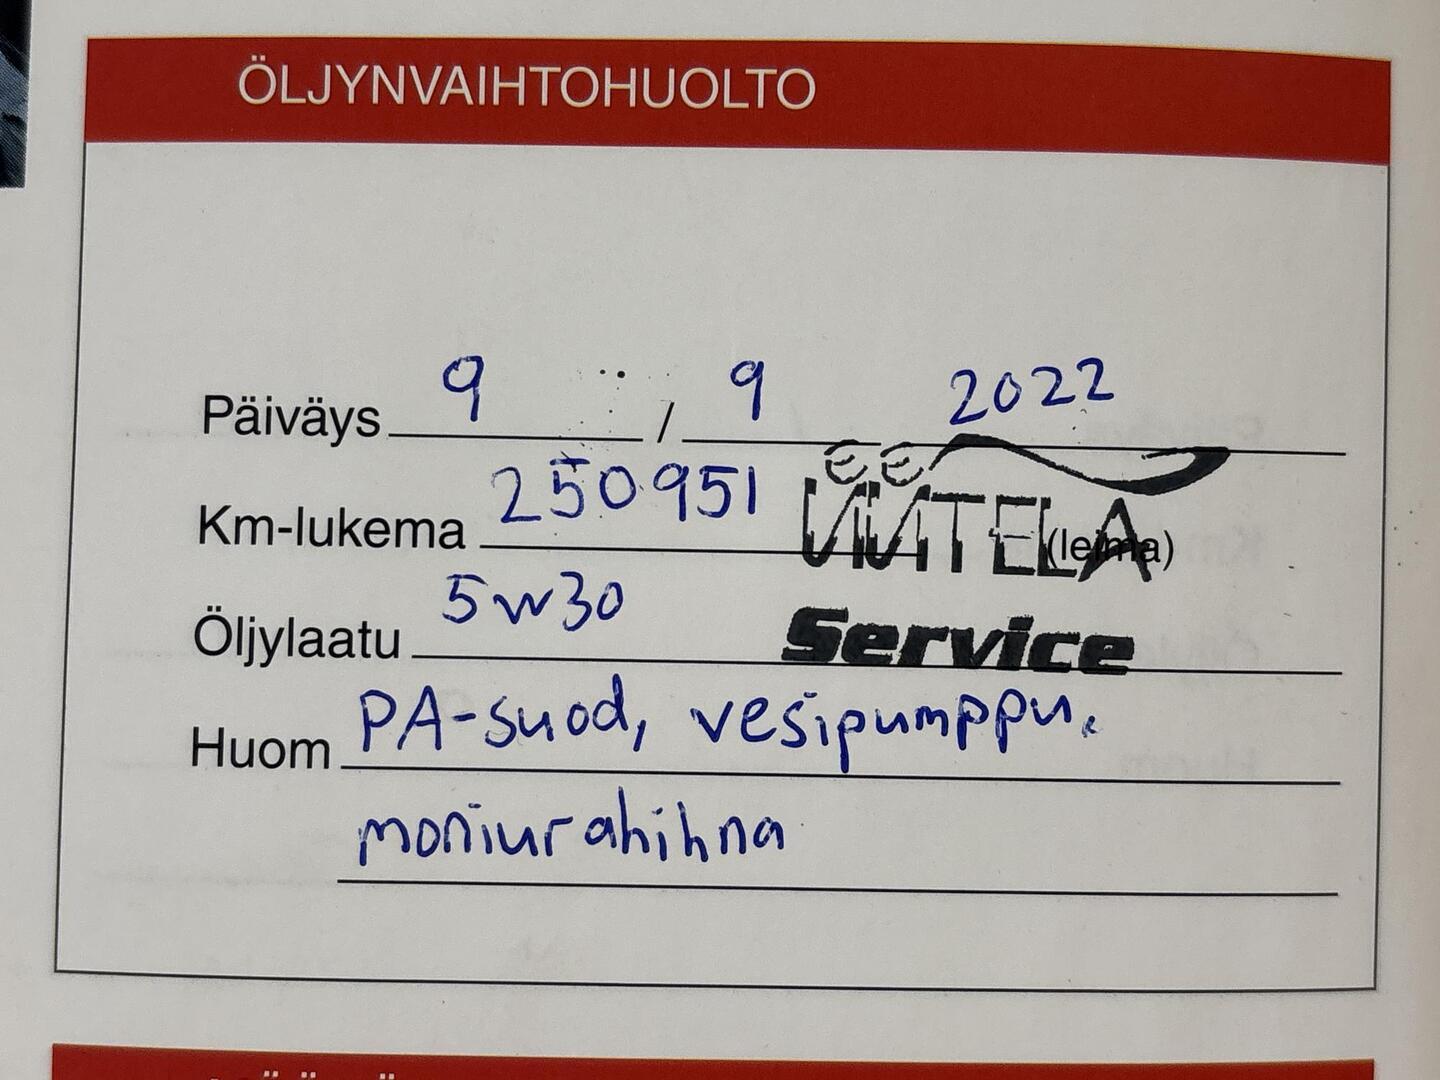 ÖLJYNVAIHTOHUOLTO
Päiväys 9 / 9 2022
Km-lukema 250951
NIINTELA (leima)
Öljylaatu 5w30
Service
Huom PA-suod, vesipumppu.
moniurahihna